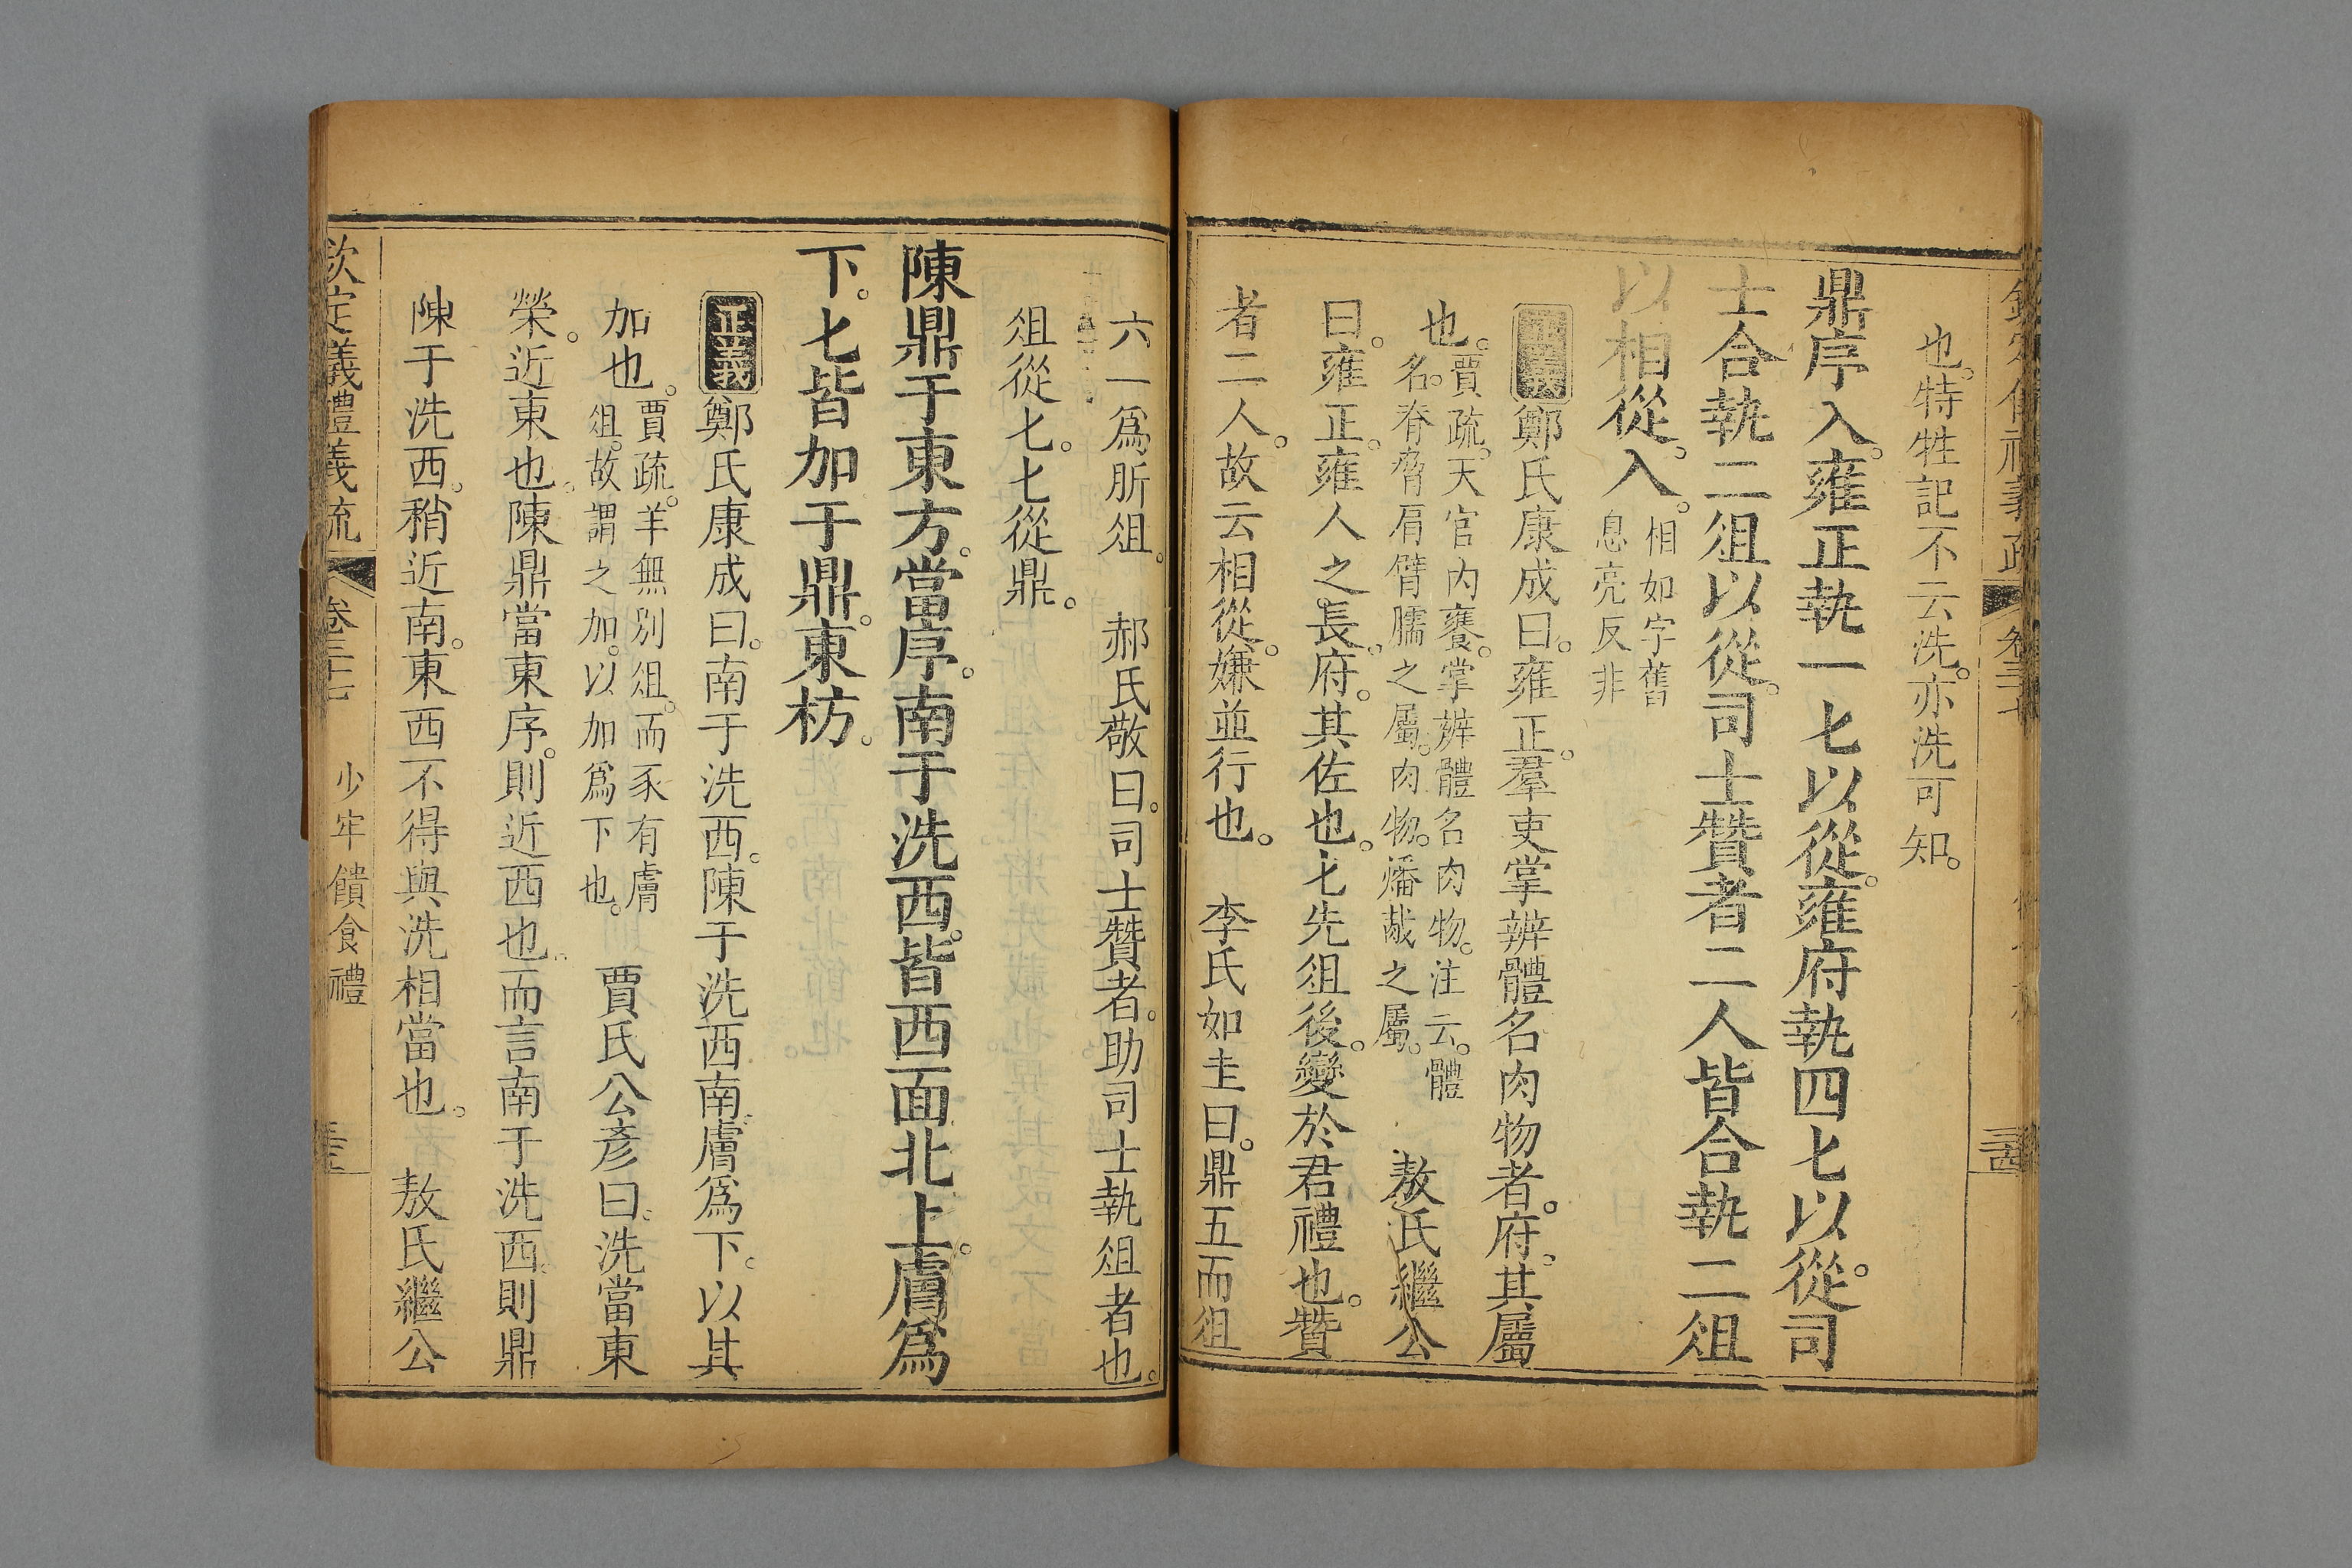 也。特牲記不云洗。亦洗可知。
鼎序入。雍正執一匕以從。雍府執四匕以從。司
士合執二俎以從。司士贊者二人皆合執二俎
以相從。入。相如字舊
息亮反非
正義鄭氏康成曰。雍正。羣吏掌辨體名肉物者。府。其屬
也。賈疏。天官內饔。掌辨體名肉物。注云。體
名。脊脅肩臂臑之屬。肉物。燔胾之屬。
敖氏繼公
曰。雍正。雍人之長。府。其佐也。匕先俎後。變於君禮也。贊
者二人。故云相從。嫌並行也。 李氏如圭曰。鼎五而俎
六一爲肵俎。 郝氏敬曰。司士贊者。助司士執俎者也。
俎從匕。匕從鼎。
陳鼎于東方。當序。南于洗西。皆西面北上。膚爲
下。匕皆加于鼎。東枋。
正義鄭氏康成曰。南于洗西。陳于洗西南。膚爲下。以其
加也。賈疏。羊無別俎。而豕有膚
俎。故謂之加。以加爲下也。
賈氏公彥曰。洗當東
榮。近東也。陳鼎當東序。則近西也。而言南于洗西。則鼎
陳于洗西。稍近南。東西不得與洗相當也。 敖氏繼公
欽定儀禮義疏 卷三十七 少牢饋食禮 三五